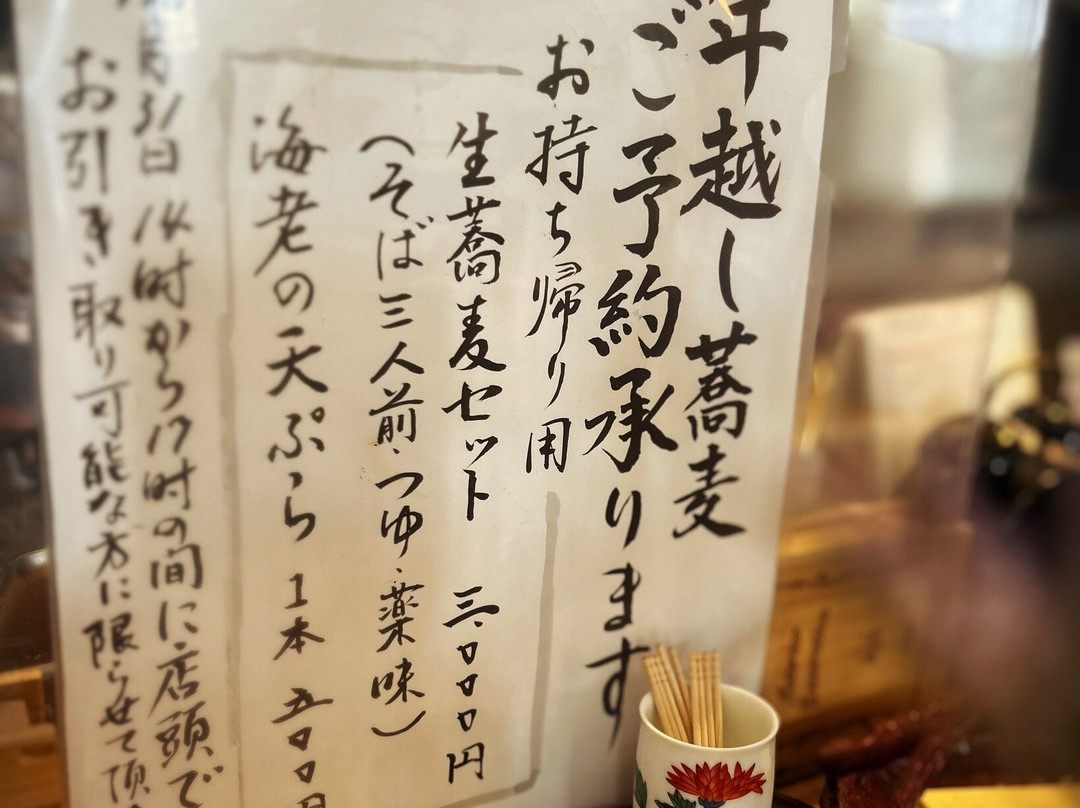 年越し蕎麦
ご予約承ります
お持ち帰り用
生蕎麦セット 三、〇〇〇円
(そば三人前・つゆ・薬味)
海老の天ぷら 1本 五〇〇円
月31日 14時から17時の間に店頭で
お引き取り可能な方に限らせて頂